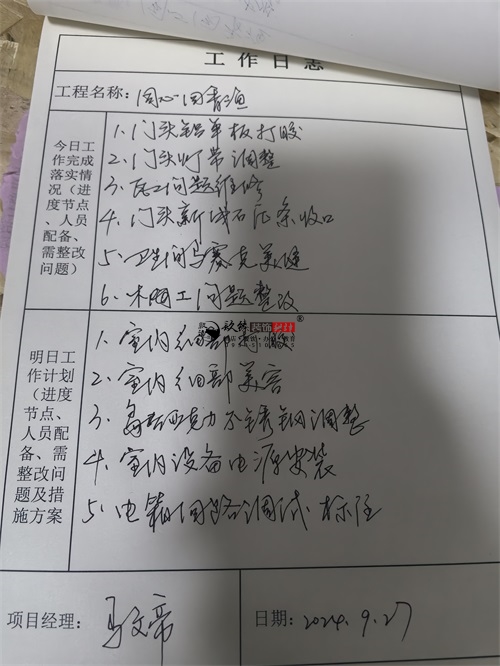 工作日志
工程名称:同心田青渔
今日工作完成落实情况(进度节点、人员配备、需整改问题)
1. 门头铝单板打胶
2. 门头灯带调整
3. 瓦工问题维修
4. 门头新浅石压条收口
5. 卫生间马赛克美缝
6. 木油工问题整改
明日工作计划(进度节点、人员配备、需整改问题及措施方案
1. 室内细部打胶
2. 室内细部美容
3. 亚克力不锈钢调整
4. 室内设备电源安装
5. 电箱回路调试标注
装饰
项目经理:马文帝
日期:2024.9.27